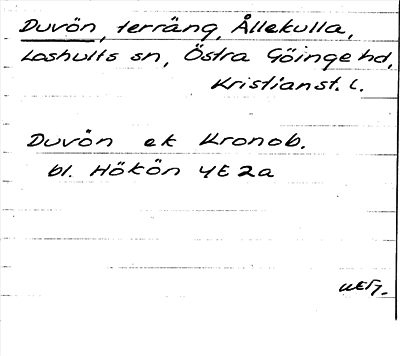 Duvön, terräng, Ållekulla,
Loshults sn, Östra Göinge hd,
Kristianst. l.
Duvön ek Kronob.
bl. Hökön 4E2a